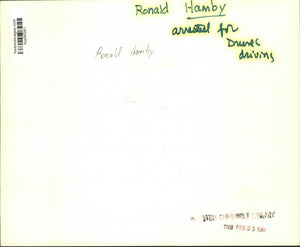 Ronald Hamby
arrested for
Drunk
driving
Ronald Hamby
HOUSTON CHRONICLE LIBRARY
THU FEB 23